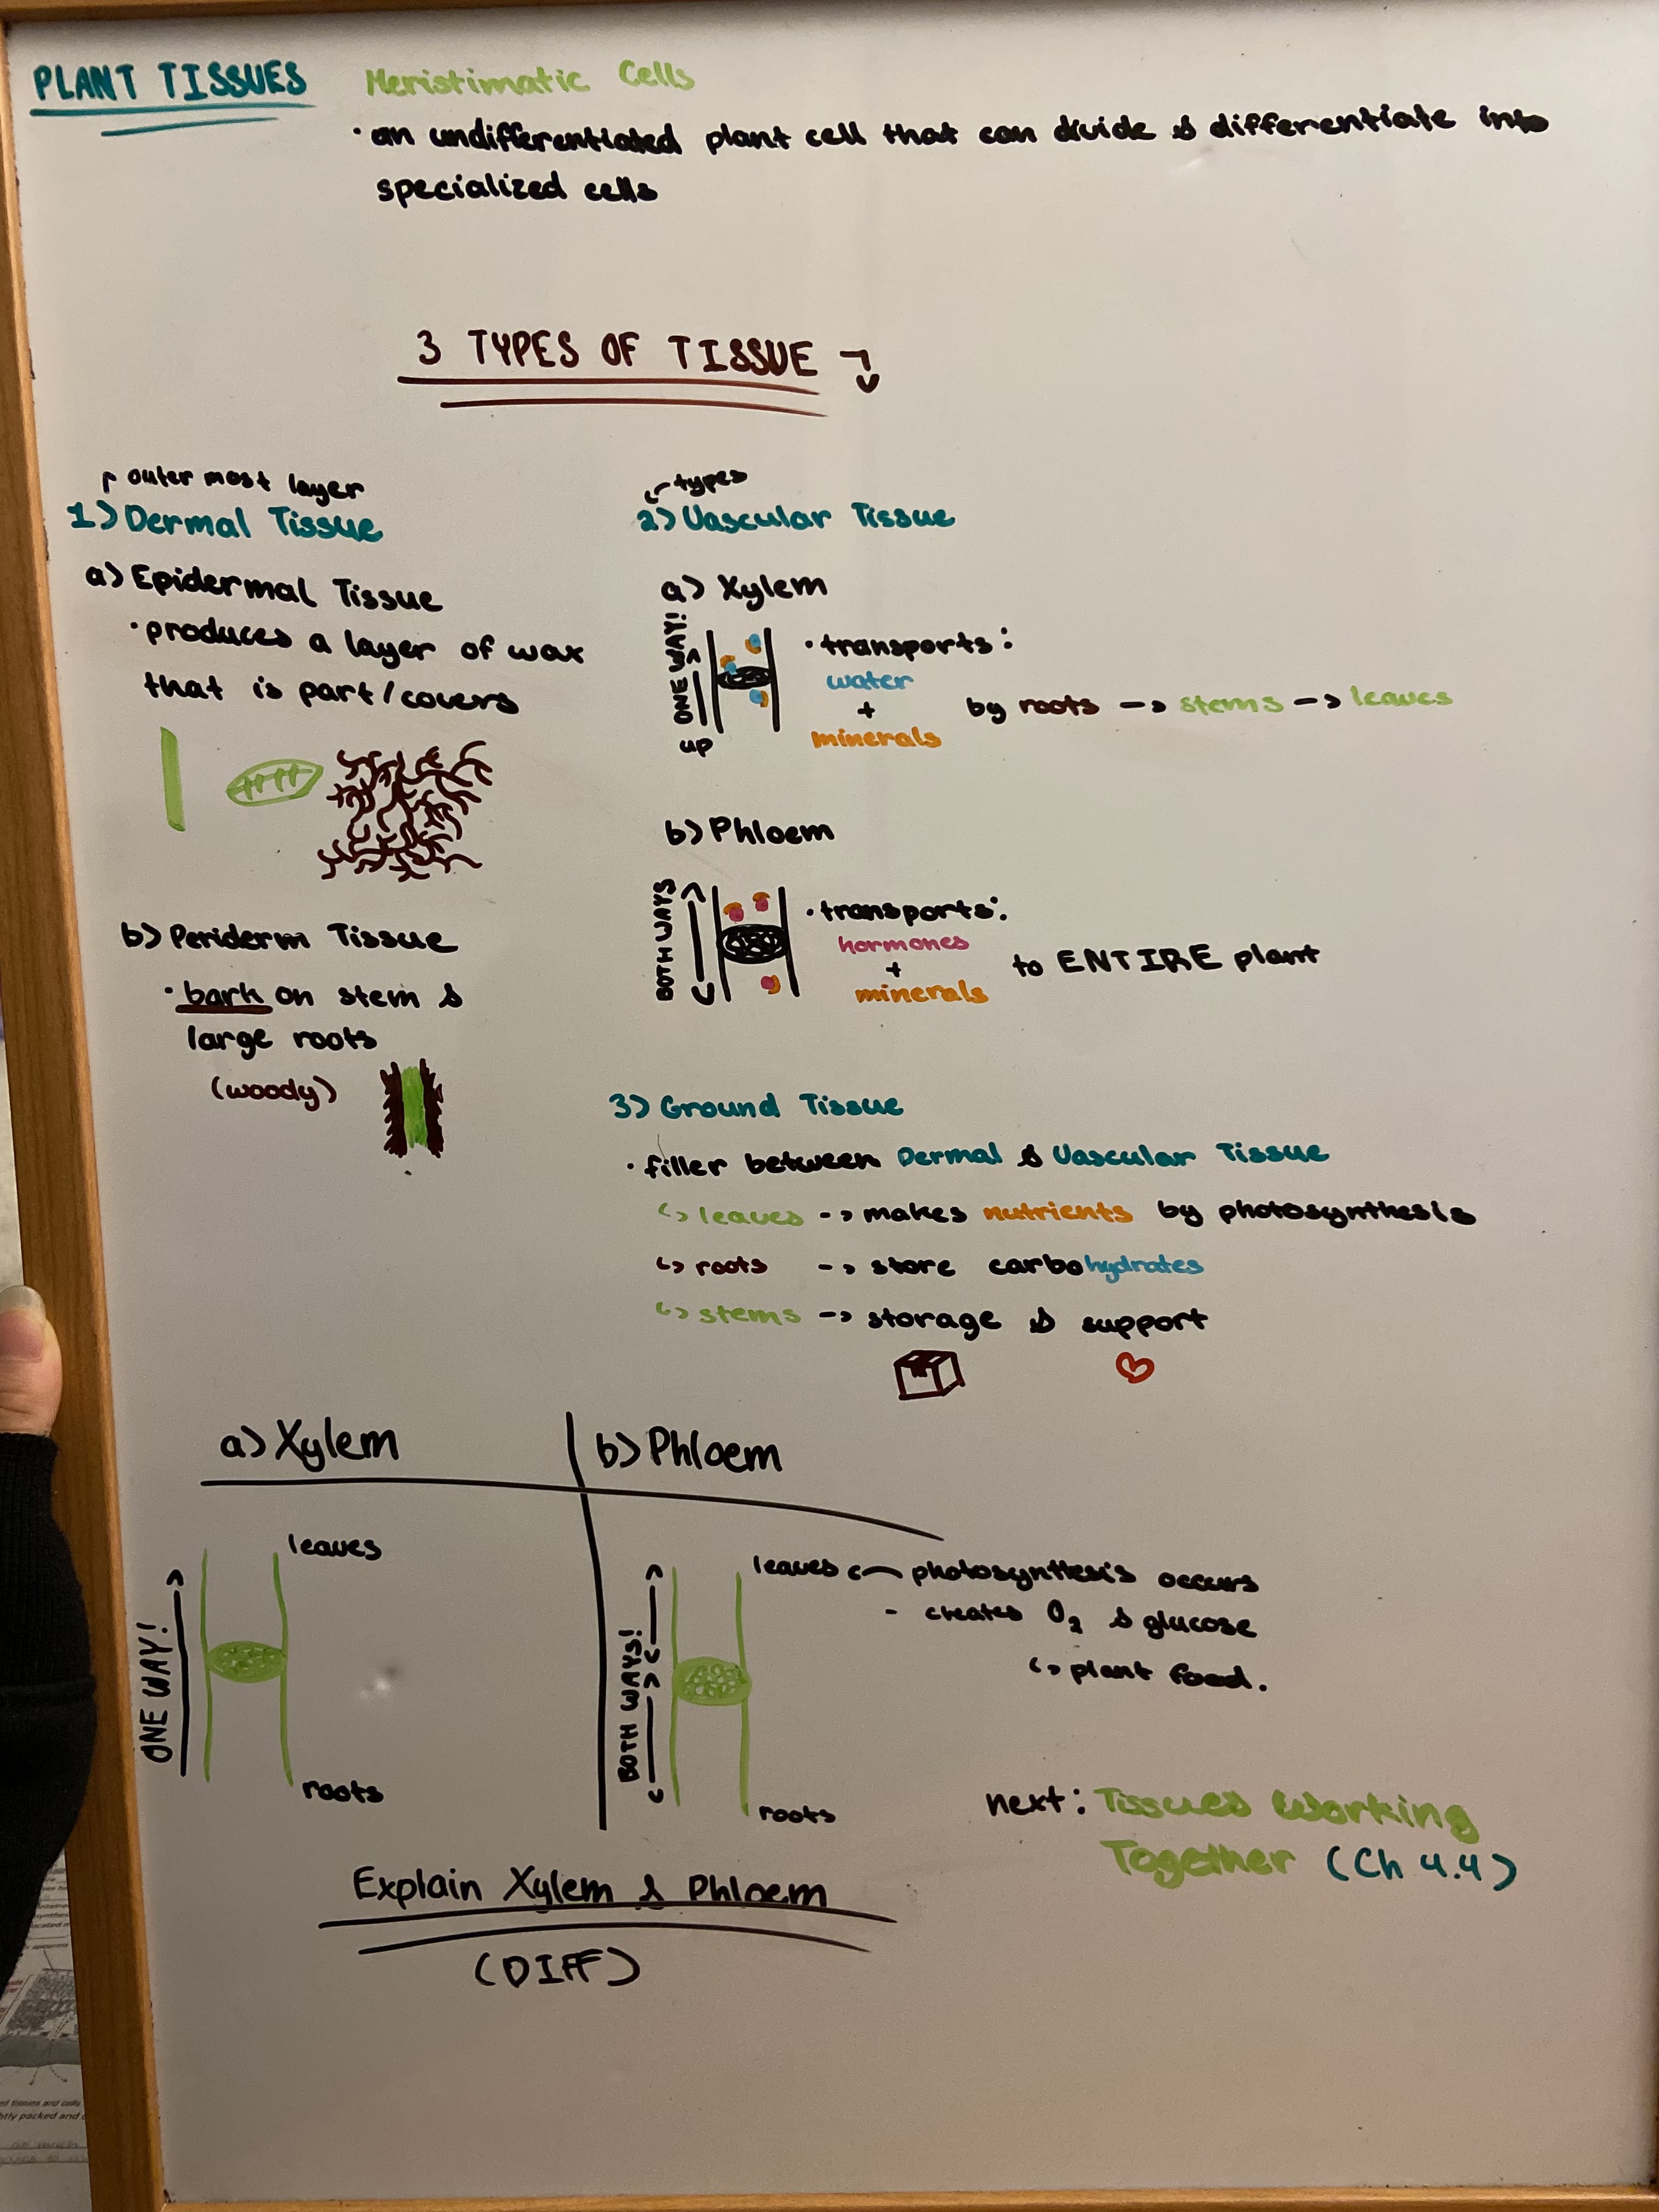 PLANT TISSUES
Meristimatic Cells
· an undifferentiated plant cell that can divide & differentiate into
specialized cells
3 TYPES OF TISSUE
outer most layer
1) Dermal Tissue
a) Epidermal Tissue
· produces a layer of wax
that is part/covers
b) Periderm Tissue
· bark on stem &
large roots
(woody)
types
2) Vascular Tissue
a) Xylem
ONE WAY!
up
· transports:
water
+
minerals
by roots -> stems -> leaves
b) Phloem
BOTH WAYS
· transports:
hormones
+
minerals
to ENTIRE plant
3) Ground Tissue
· filler between Dermal & Vascular Tissue
↳ leaves -> makes nutrients by photosynthesis
↳ roots -> store carbohydrates
↳ stems -> storage & support
a) Xylem
ONE WAY!
leaves
roots
b) Phloem
BOTH WAYS!
leaves
photosynthesis occurs
- creates O₂ & glucose
↳ plant food.
roots
next: Tissues Working
Together (Ch 4.4)
Explain Xylem & Phloem
(DIFF)